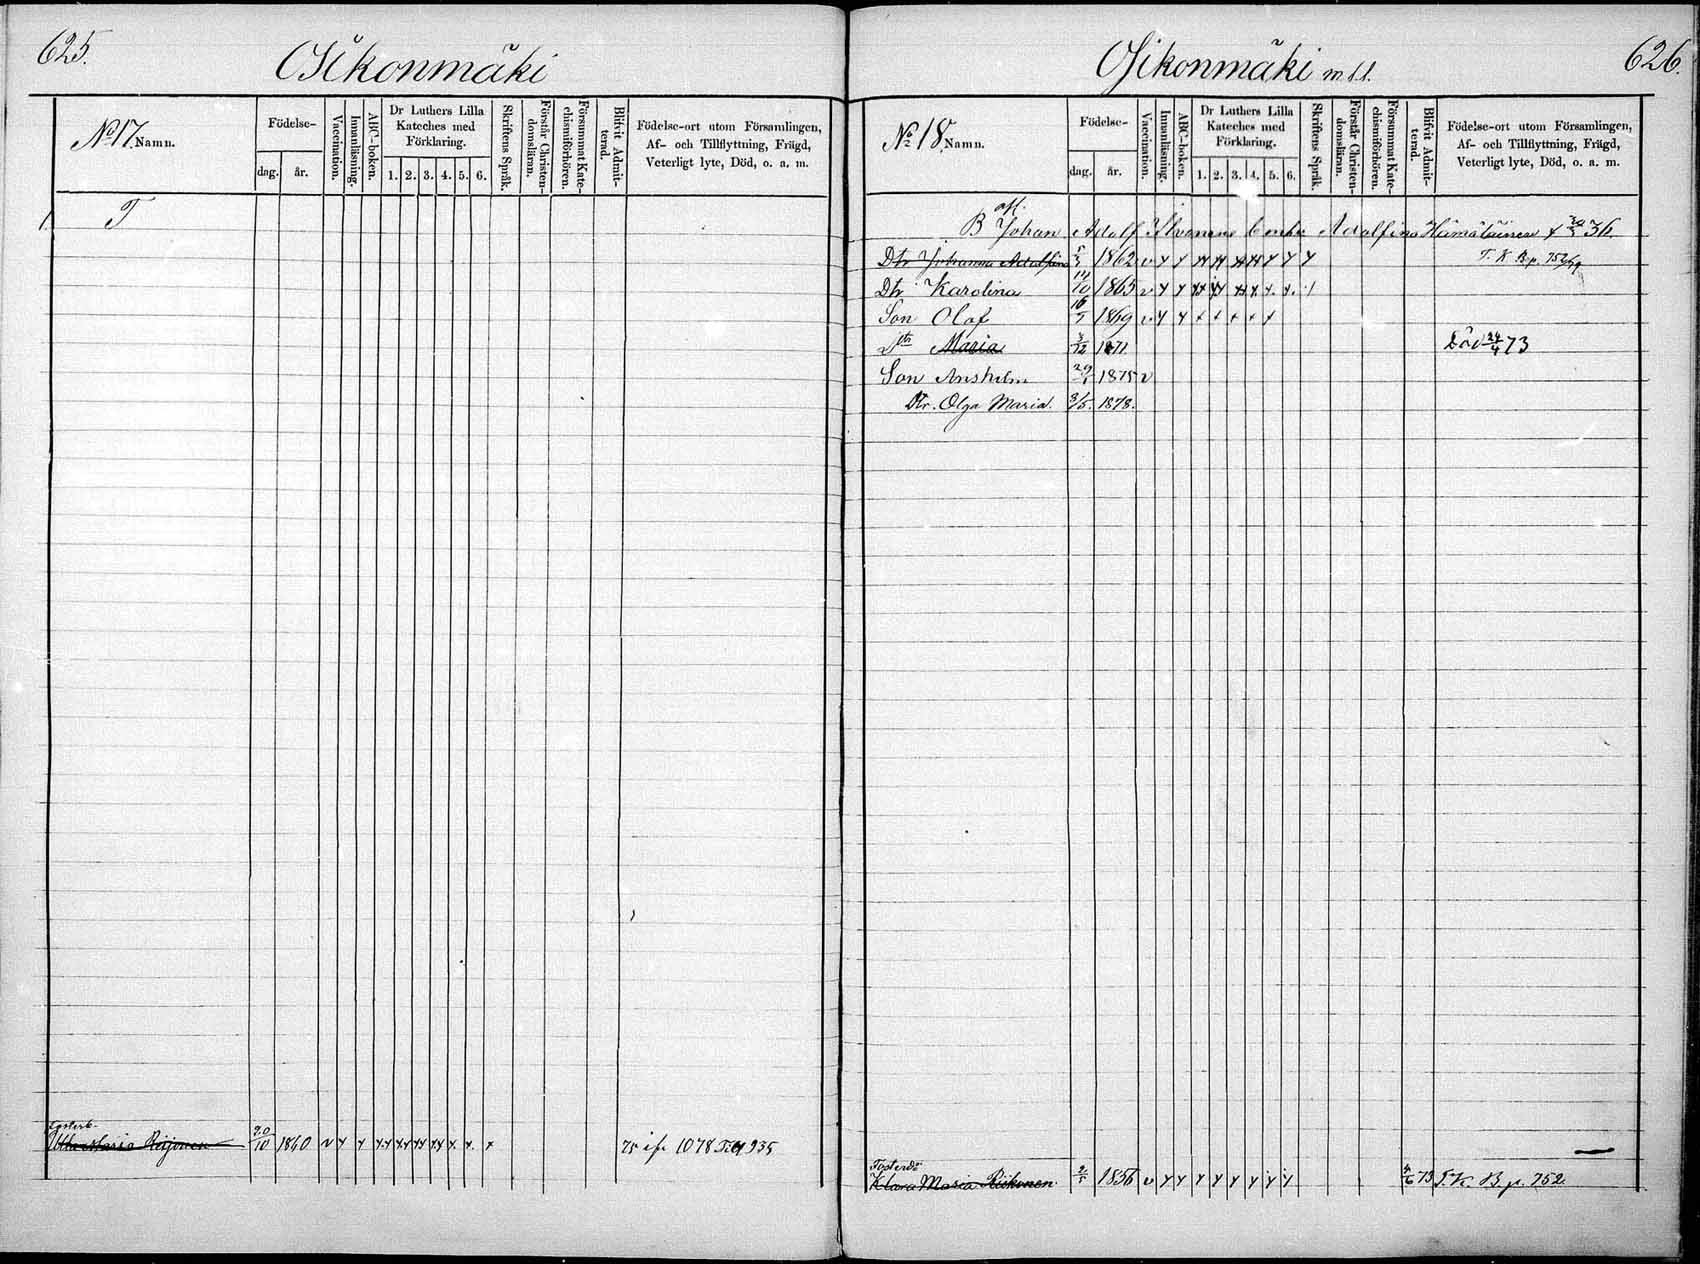 625.
Oikonmäki
No 17. Namn.
Födelse-
dag.
år.
Vaccination.
Innanläsning.
ABC-boken.
Dr Luthers Lilla
Kateches med
Förklaring.
1. 2. 3. 4. 5. 6.
Skriftens Språk.
Förstår Christen-
domsläran.
Försummat Kate-
chismiförhören.
Blifvit Admit-
terad.
Födelse-ort utom Församlingen,
Af- och Tillflyttning, Frägd,
Veterligt lyte, Död, o. a. m.
T
Maria Reijonen 20/10 1860 v 75 1078 935
626.
Oikonmäki
No 18. Namn.
Födelse-
dag.
år.
Vaccination.
Innanläsning.
ABC-boken.
Dr Luthers Lilla
Kateches med
Förklaring.
1. 2. 3. 4. 5. 6.
Skriftens Språk.
Förstår Christen-
domsläran.
Försummat Kate-
chismiförhören.
Blifvit Admit-
terad.
Födelse-ort utom Församlingen,
Af- och Tillflyttning, Frägd,
Veterligt lyte, Död, o. a. m.
B Johan Adolf Adolfina Hämäläinen 36.
Dtr Johanna Adolfina 1862 v T. K. B p. 752
Dtr Karolina 1865 v
Son Olof 1869 v
Dtr Maria 3/12 1871 Död 24/4 73
Son Ansholm 1875 v
Dtr. Olga Maria. 3/5. 1878.
Klara Maria Riikonen. 2/5 1856 v 4/6 73 T. K. B p. 752.